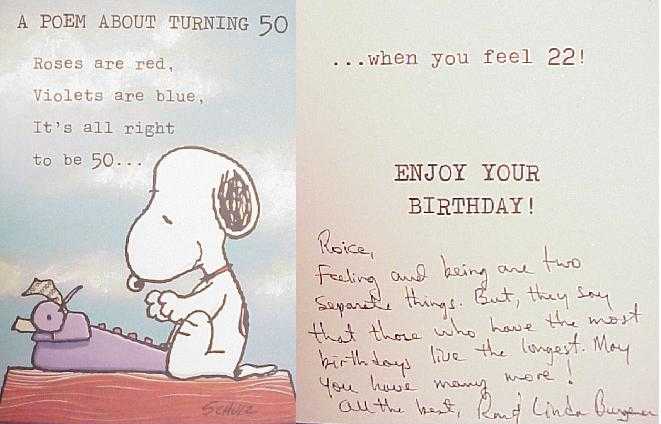 A POEM ABOUT TURNING 50
Roses are red,
Violets are blue,
It's all right
to be 50...
SCHULZ
...when you feel 22!
ENJOY YOUR
BIRTHDAY!
Roice,
Feeling and being are two
separate things. But, they say
that those who have the most
birthdays live the longest. May
you have many more!
All the best, Linda